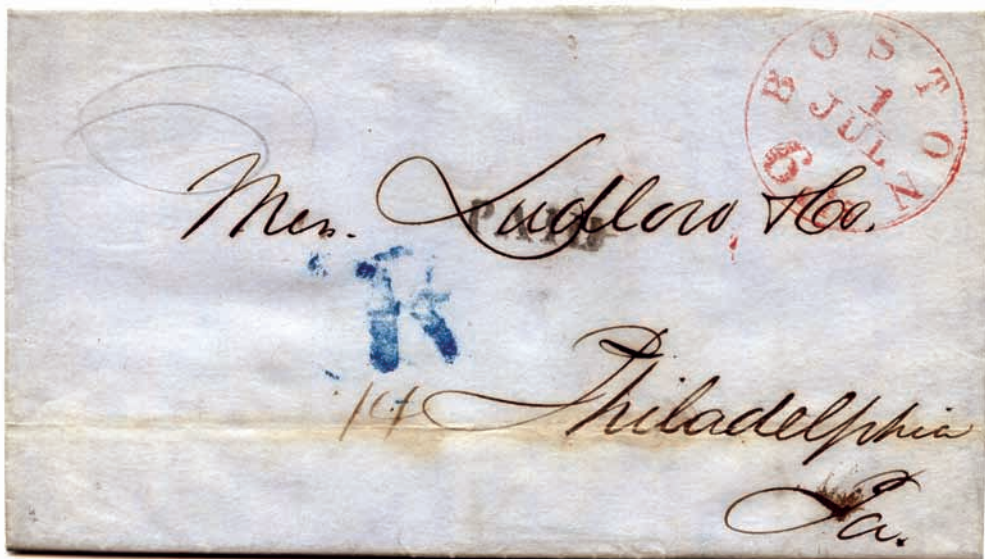 BOSTON
1
JUL
6
Mes. Ludlow & Co.
PAID
R
Philadelphia
Pa.